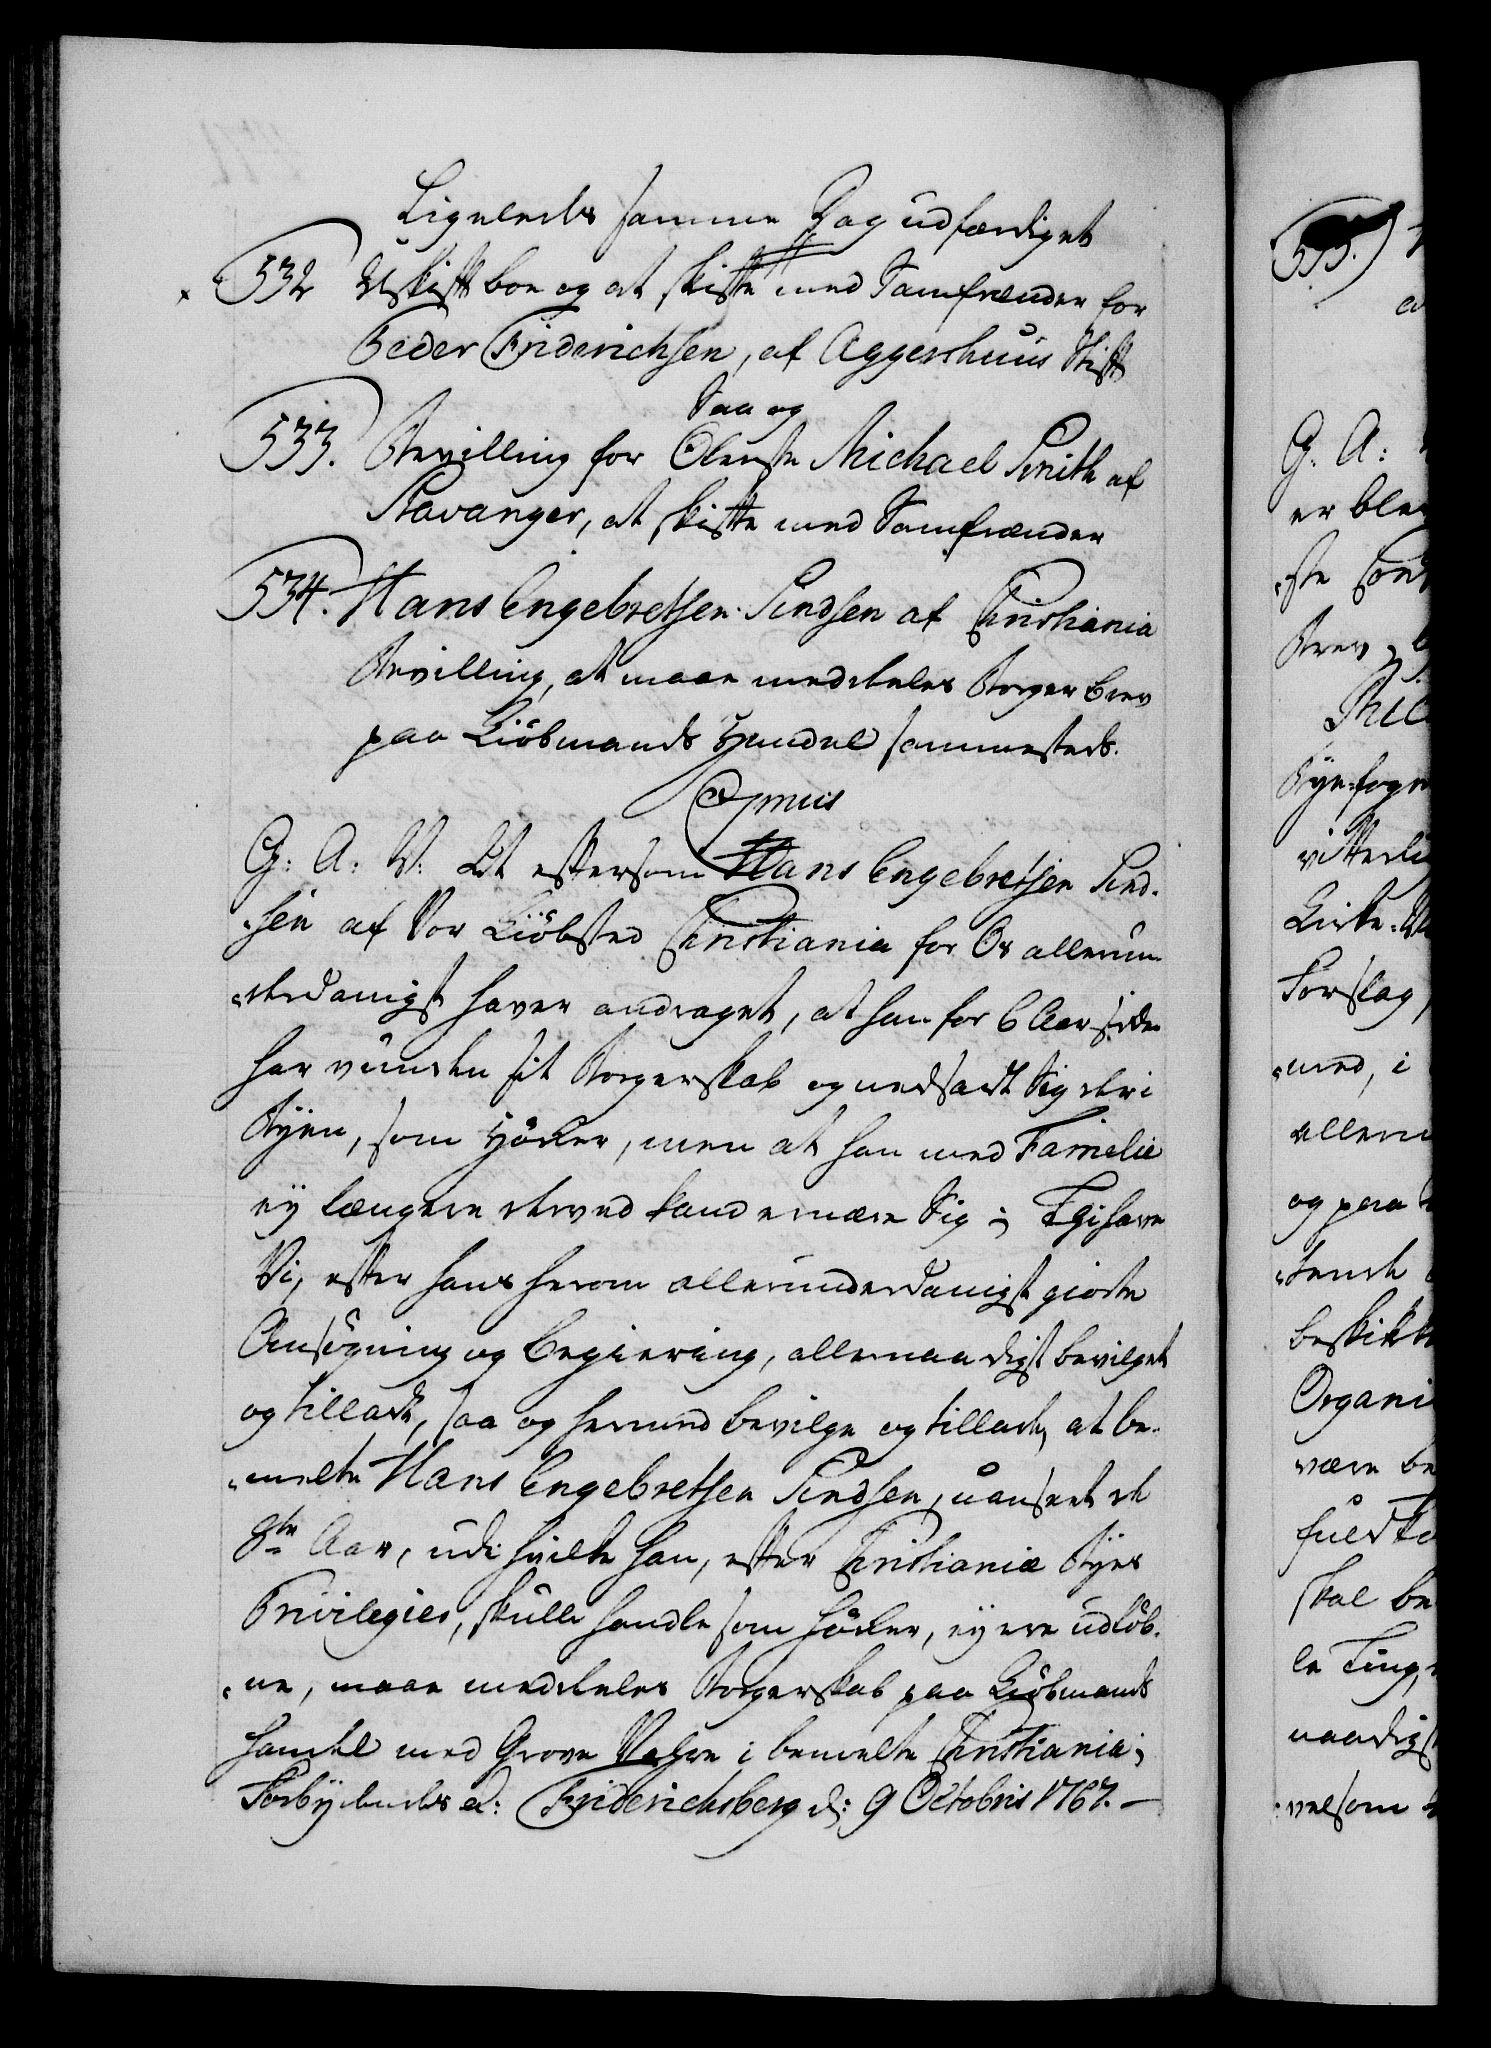 Ligeledes samme Dag udfærdiget
532 Uskift boe og at skifte med Samfrænder for
Peder Friderichsen, af Aggershuus Stift
Saa og
533. Bevilling for Oberste Michael Smith af
Stavanger, at skifte med Samfrænder
534. Hans Engebretsen Sindsen af Christiania
Bevilling, at maae meddeeles Borger brev
paa Kiöbmands Handel sammesteds.
G: A: V: At eftersom Hans Engebretsen Sind-
sen af Vor Kiöbsted Christiania for Os allerun-
derdanigst haver andraget, at han for 6 Aar siden
har vundet sit Borgerskab og nedsadt Sig der i
Byen, som Höcker, men at han med Familie
ey længere derved kand ernære Sig; Thi have
Vi, efter hans herom allerunderdanigst giorte
Ansögning og begiering, allernaadigst bevilget
og tilladt, saa og hermed bevilge og tillade, at be-
melte Hans Engebretsen Sindsen, uanseet de
8te Aar, udi hvilke han, efter Christiania Byes
Privilegier, skulle handle som Höcker, ey ere udlöb-
ne, maae meddeeles Borgerskab paa Kiöbmands
Handel med Grove Vahre i bemelte Christiania;
Forbydendes a: Friderichsberg d: 9 Octobris 1767.
G: A:
er blev
Brev
Kirke
Forslag,
med, i
og paa
beskikke
Organi
være be
skal be
le Ting,
naadigst
velsom